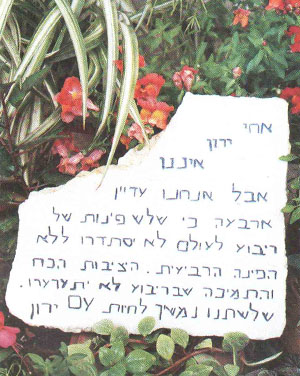 אחי
ירון
איננו
אבל אנחנו עדיין
ארבעה כי שלש פינות של
ריבוע לעולם לא יסתדרו ללא
הפינה הרביעית. היציבות הכח
והתמיכה שבריבוע לא יתערערו.
שלשתנו נמשיך לחיות עם ירון